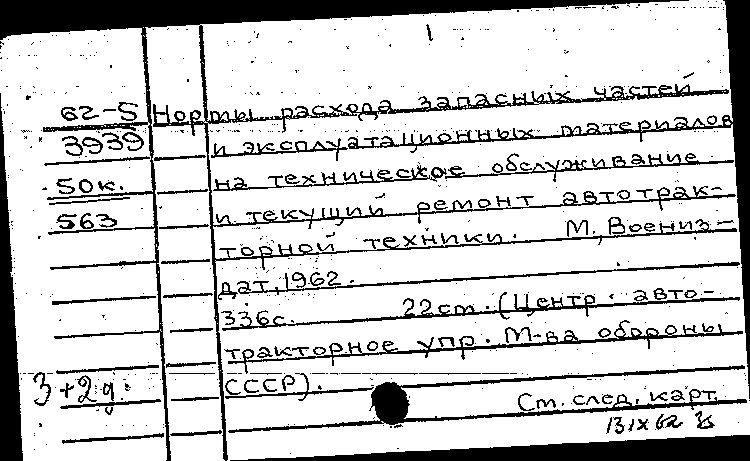 1
62-5 Нормы расхода запасных частей
3939 и эксплуатационных материалов
50к. на техническое обслуживание
563 и текущий ремонт автотрак-
торной техники. М., Воениз-
дат, 1962.
336с. 22см. (Центр. авто-
тракторное упр. М-ва обороны
СССР).
3+2д.
См. след. карт.
131х62